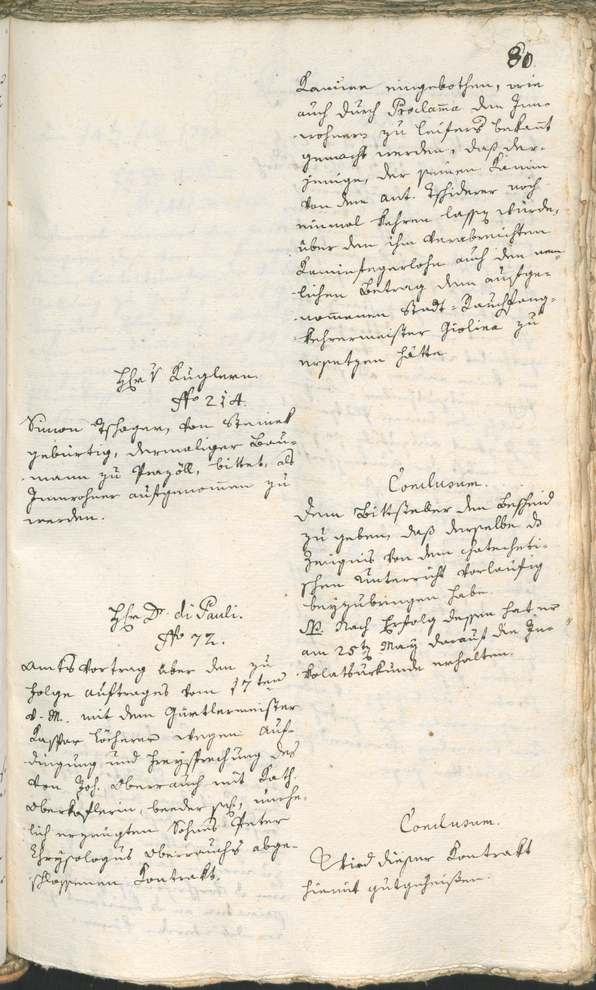 80.
Kamine eingebothen, wie
auch durch Proclama den Inn-
wohnern zu Leifers bekannt
gemacht werden, daß der-
jenige, der seinen Kamin
von dem Ant. Tschiderer noch
einmal kehren lassen würde,
über den ihm verabreichten
Kaminfegerlohn auch den nem-
lichen Betrag dem aufge-
nommenen Stadt-Rauchfang-
kehrermeister Giolina zu
ersetzen hätte.
Hr. v. Kuglern.
No 214.
Simon Tschager, von Steinek
gebürtig, dermaliger Bau-
mann zu Prazöll, bittet, als
Innwohner aufgenommen zu
werden.
Conclusum.
Dem Bittsteller den Bescheid
zu geben, daß derselbe das
Zeugnis von dem catecheti-
schen Unterricht vorläufig
beyzubringen habe.
NB. Nach Erfolg dessen hat er
am 25ten May darauf die In-
kolatsurkunde erhalten.
Hr. Dr. di Pauli.
No 72.
Amtsvortrag über den zu
Folge Auftrages vom 17ten
v. M. mit dem Gürtlermeister
Kaspar Löcherer wegen Auf-
dingung und Freysprechung des
von Joh. Oberrauch mit Kath.
Oberkoflerin, beeder sel., unehe-
lich erzeugten Sohns Peter
Chrysologus Oberrauchs abge-
schlossenen Kontrakt.
Conclusum.
Wird dieser Kontrakt
hiemit gutgeheißen.